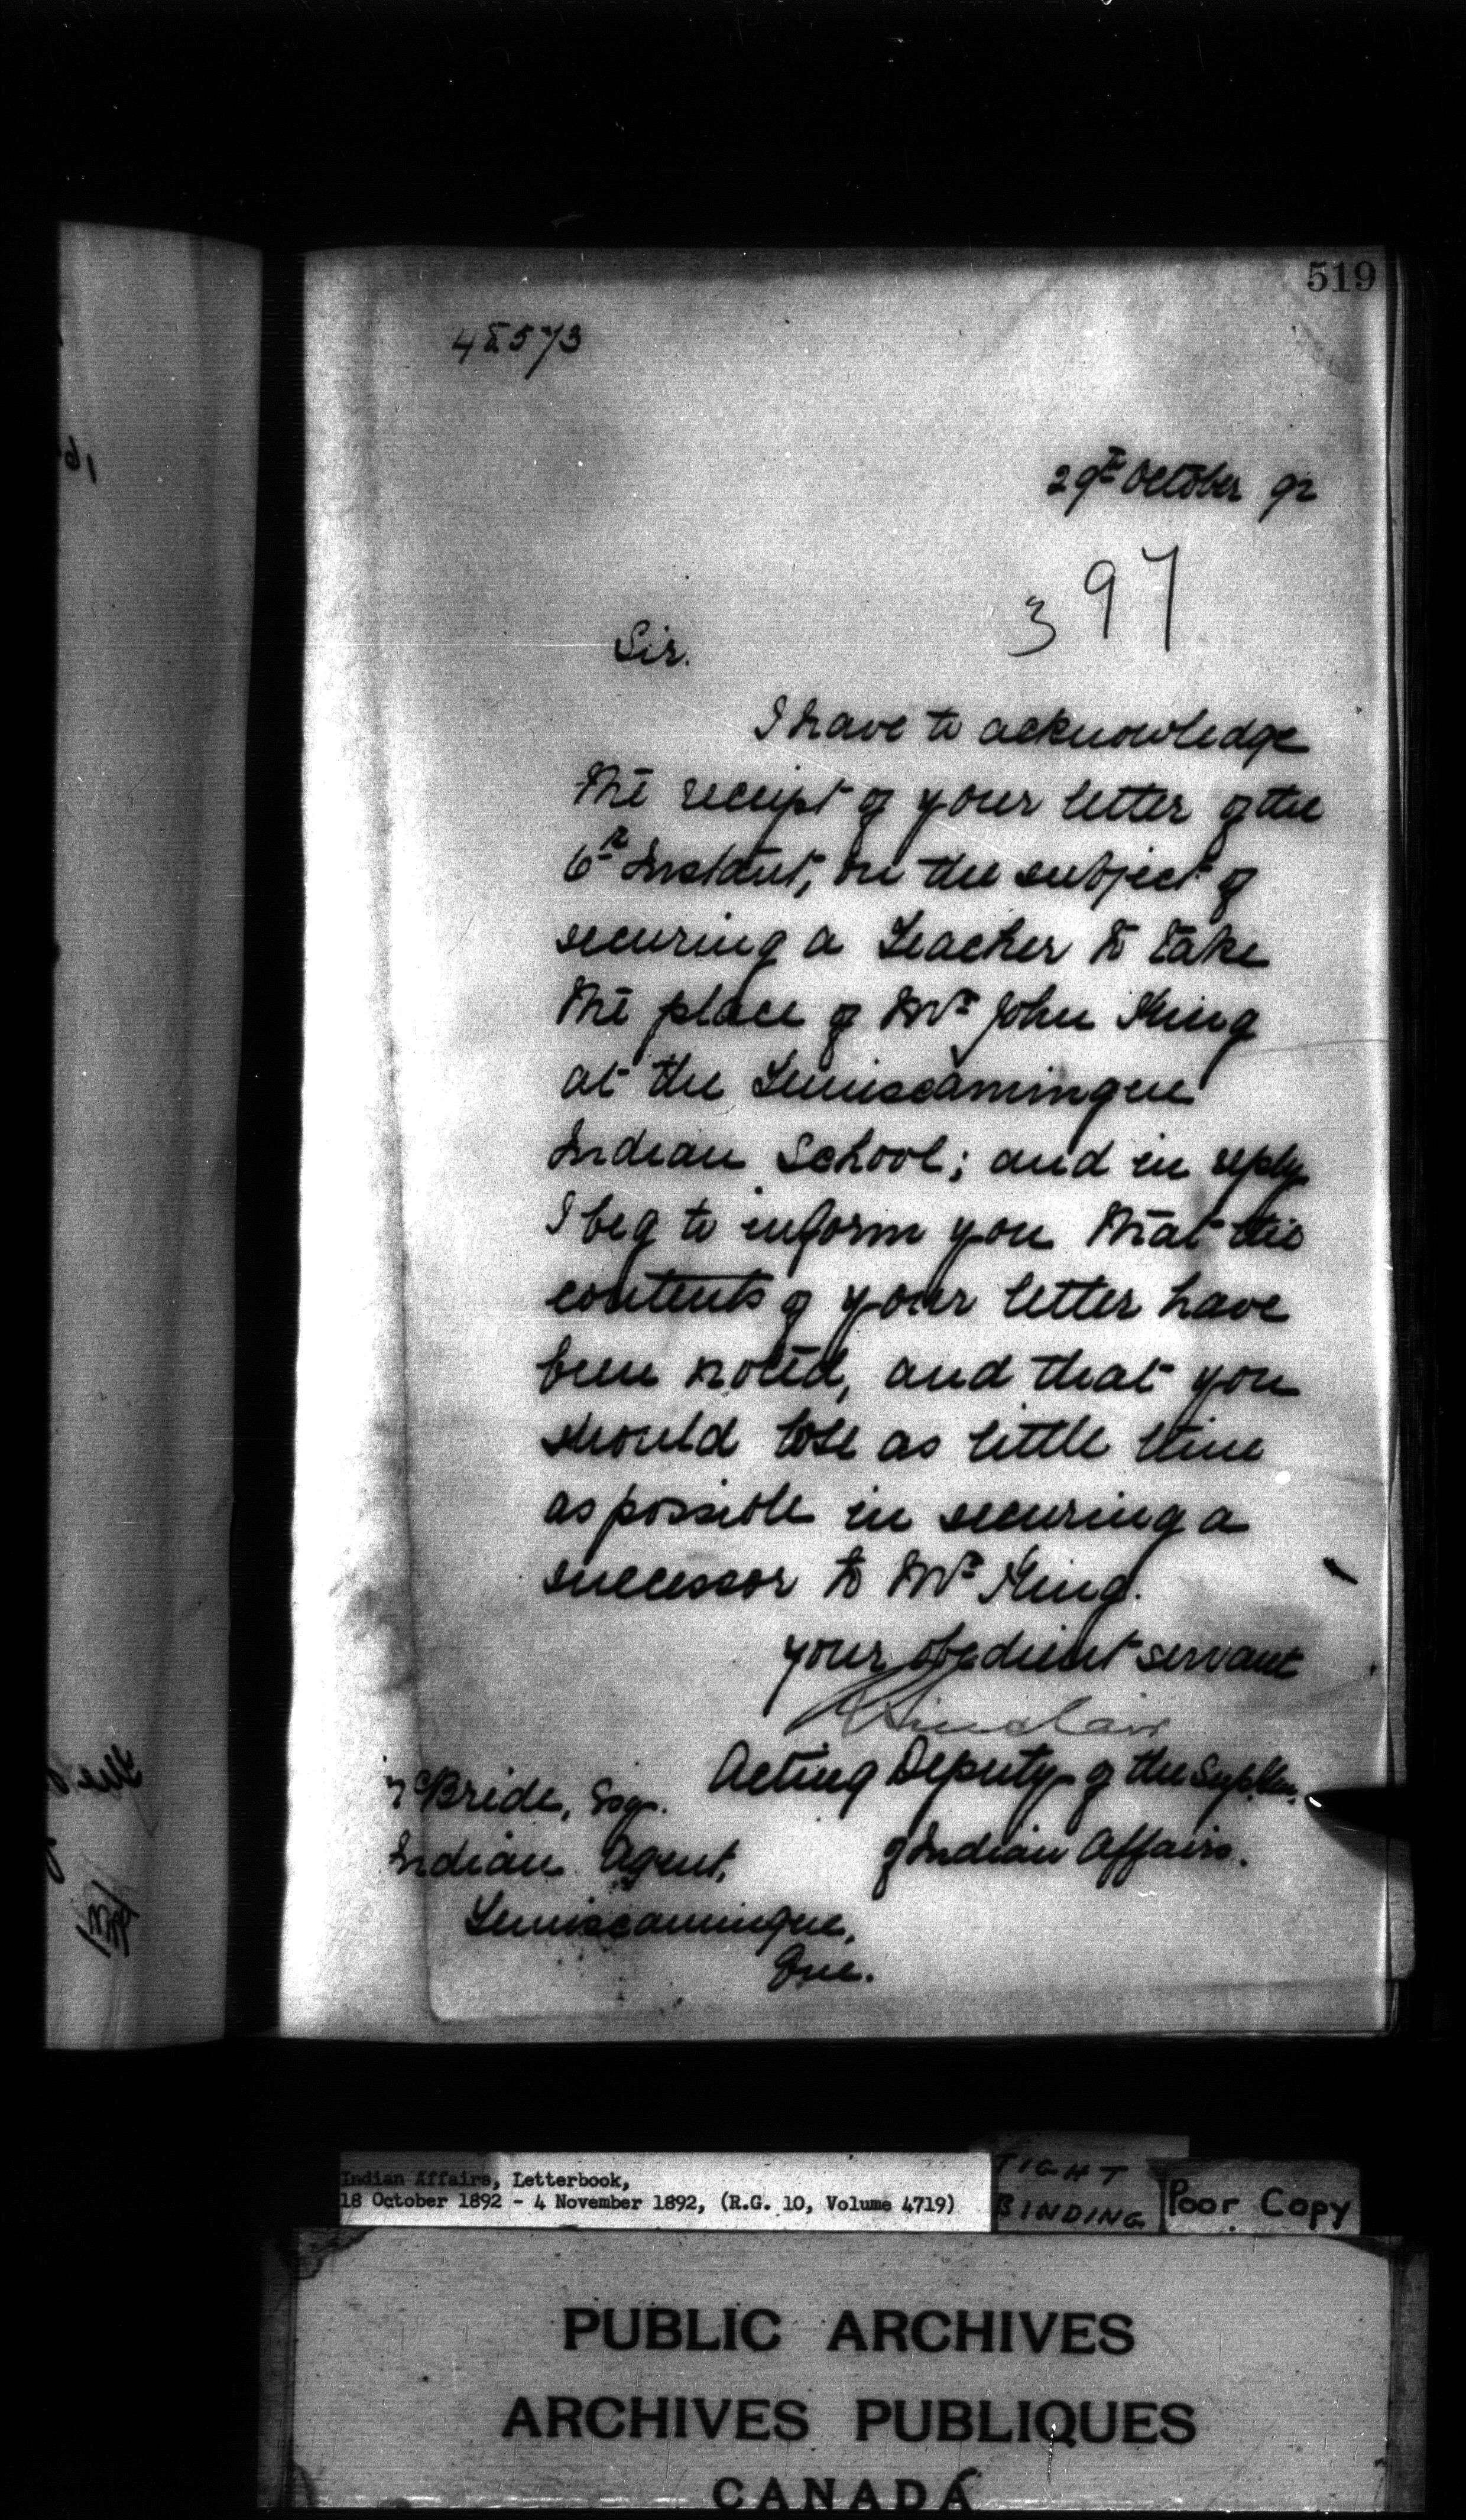 519
29th October 92
397
Sir.
I have to acknowledge
the receipt of your letter of the
6th Instant, on the subject of
securing a Teacher to take
the place of Mr John King
at the Temiscamingue
Indian School; and in reply
I beg to inform you that the
contents of your letter have
been noted, and that you
should lose as little time
as possible in securing a
successor to Mr King.
your obedient servant
Sinclair
Acting Deputy of the Supt. Gen.
of Indian Affairs.
McBride, Esq.
Indian Agent,
Temiscamingue,
Que.
Indian Affairs, Letterbook,
18 October 1892 - 4 November 1892, (R.G. 10, Volume 4719)
TIGHT
BINDING
Poor Copy
PUBLIC ARCHIVES
ARCHIVES PUBLIQUES
CANADA